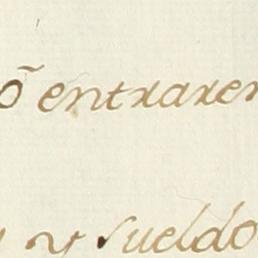 õ entraren
y sueldo